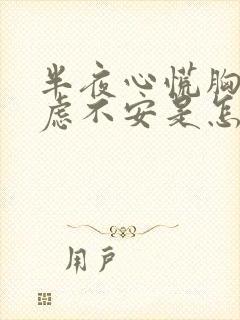 半夜心慌胸
虑不安是怎
用户